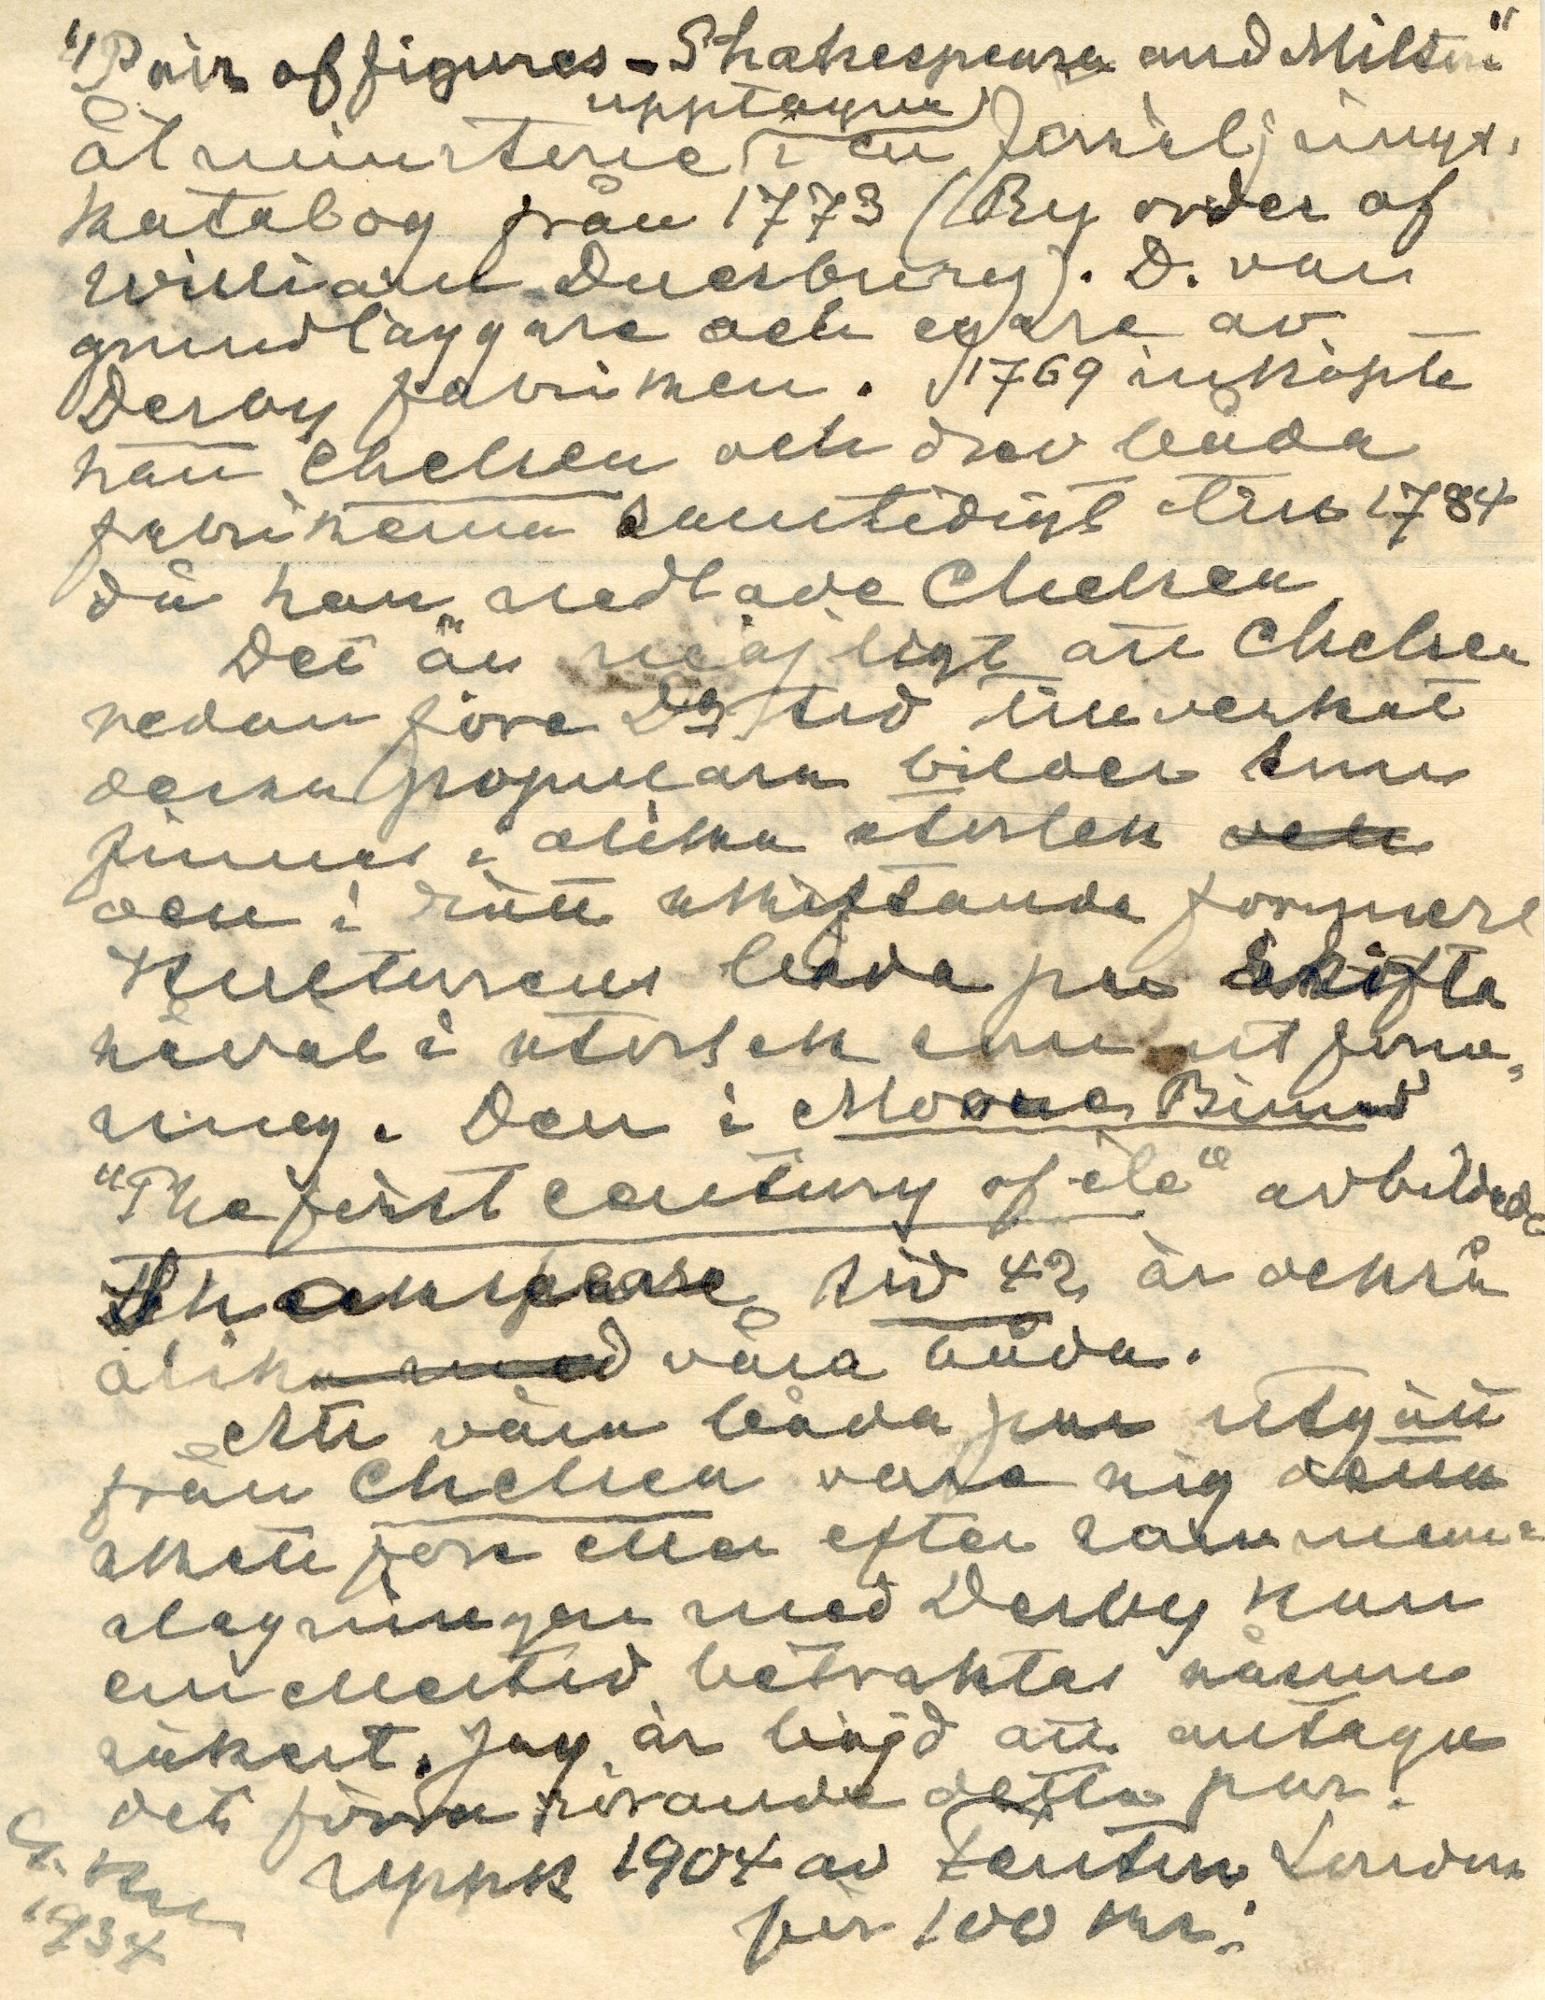 "Pair of figures - Shakespeare and Milton"
upptagna
åtminstone i en försäljnings
katalog från 1773 (By order of
William Duesbury). D. var
grundläggare och egare av
Derby fabriken. 1769 inköpte
han Chelsea och drev båda
fabrikerna samtidigt till 1784
då han nedlade Chelsea
Det är möjligt att Chelsea
redan före Ds tid tillverkat
dessa populära bilder som
finnas i olika storlek och
även i rätt skiftande former
Kulturens båda par skifta
såväl i storlek som utform-
ning. Den i Moore Binns
"The first century of etc" avbildade
Shakespeare sid 42 är också
olika med våra båda.
Att våra båda par utgått
från Chelsea vare sig detta
skett före eller efter samman-
slagningen med Derby kan
emellertid betraktas såsom
säkert. Jag är böjd att antaga
det förra rörande detta par.
uppk 1904 av Fenton London
för 100 kr.
G. Kn
1934